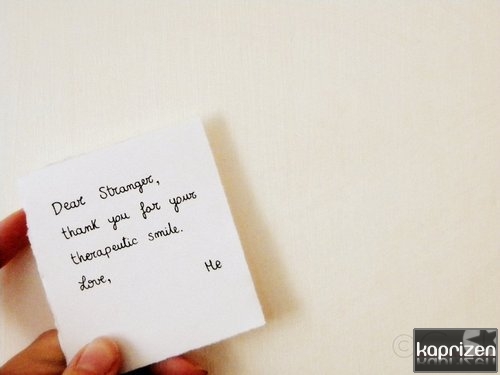 Dear Stranger,
thank you for your
therapeutic smile.
Love,
Me
kaprizen